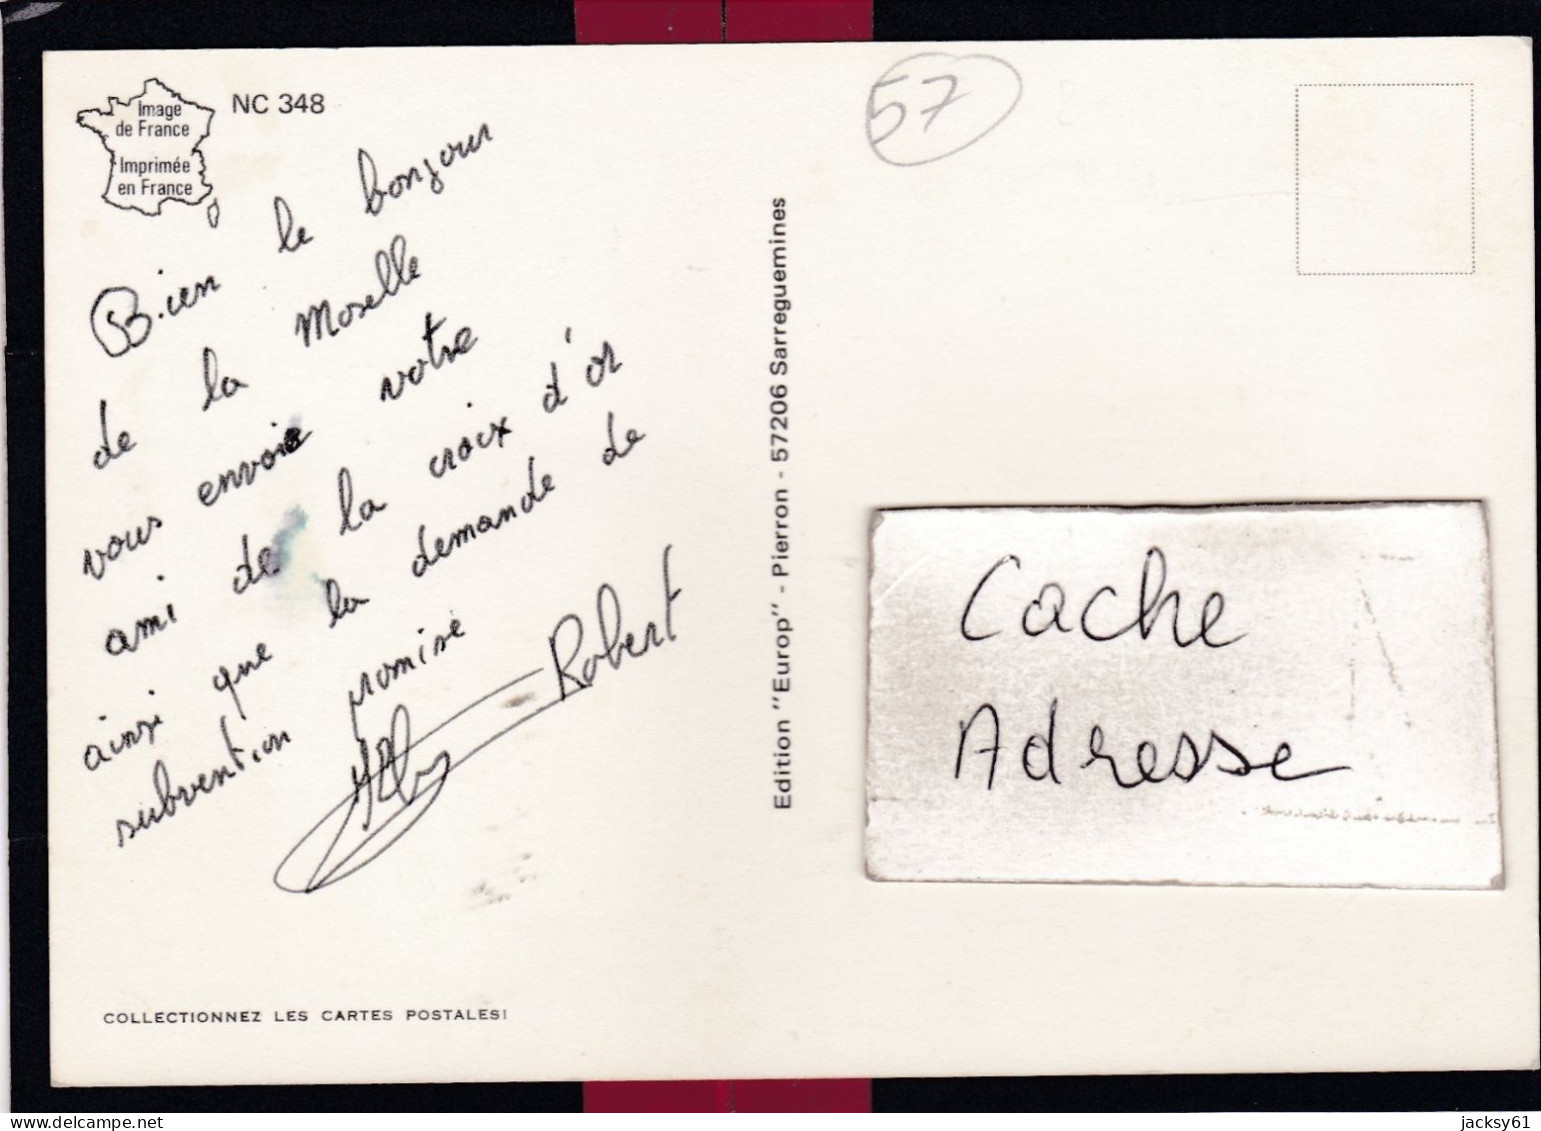 Image
de France
Imprimée
en France
NC 348
57
Bien le bonjour
de la Moselle
vous envoie votre
ami de la croix d'or
ainsi que la demande de
subvention promise
Robert
COLLECTIONNEZ LES CARTES POSTALES!
Edition "Europ" - Pierron - 57206 Sarreguemines
Cache
Adresse
jacksy61